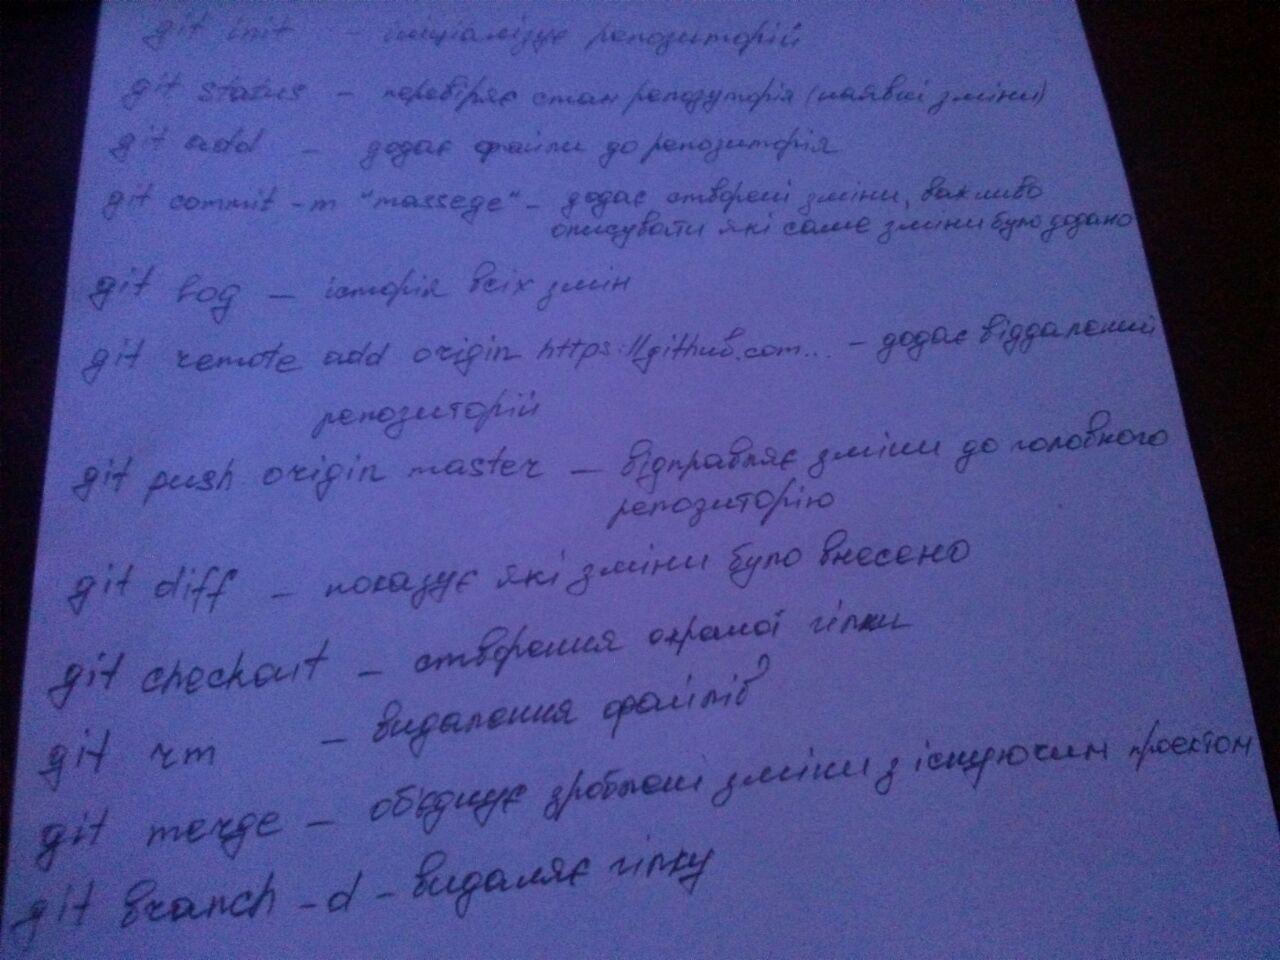 git init - ініціалізує репозиторій
git status - перевіряє стан репозуторія (наявні зміни)
git add - додає файли до репозиторія
git commit -m "massege" - додає створені зміни, важливо
описувати які саме зміни було додано
git log - історія всіх змін
git remote add origin https://github.com... - додає віддалений
репозиторій
git push origin master - відправляє зміни до головного
репозиторію
git diff - показує які зміни було внесено
git checkout - створення окремої гілки
git rm - видалення файлів
git merge - об'єднує зроблені зміни з існуючим проектом
git branch -d - видаляє гілку